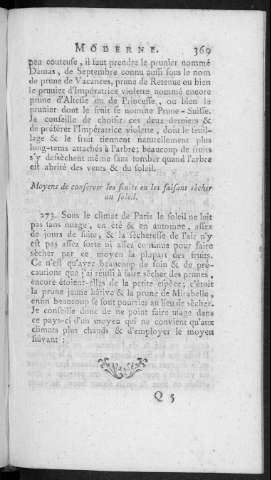 MODERNE. 369
peu couteuse, il faut prendre le prunier nommé
Damas, de Septembre connu aussi sous le nom
de prune de Vacances, prune de Retenue ou bien
le prunier d'Impératrice violette nommé encore
prune d'Altesse ou de Princesse, ou bien le
prunier dont le fruit se nomme Prune-Suisse.
Je conseille de choisir ces deux derniers &
de préférer l'Impératrice violette, dont le feuil-
lage & le fruit tiennent naturellement plus
long-tems attachés à l'arbre; beaucoup de fruits
s'y dessèchent même sans tomber quand l'arbre
est abrité des vents & du soleil.
Moyens de conserver les fruits en les faisant sècher
au soleil.
273. Sous le climat de Paris le soleil ne luit
pas sans nuage, en été & en automne, assez
de jours de suite, & la sécheresse de l'air n'y
est pas assez forte ni assez continue pour faire
sècher par ce moyen la plupart des fruits.
Ce n'est qu'avec beaucoup de soin & de pré-
cautions que j'ai réussi à faire sècher des prunes,
encore étoient-elles de la petite espèce; c'étoit
la prune jaune hâtive & la prune de Mirabelle,
enfin beaucoup se sont pourries au lieu de sècher.
Je conseille donc de ne point faire usage dans
ce pays-ci d'un moyen qui ne convient qu'aux
climats plus chauds & d'employer le moyen
suivant :
Q 5